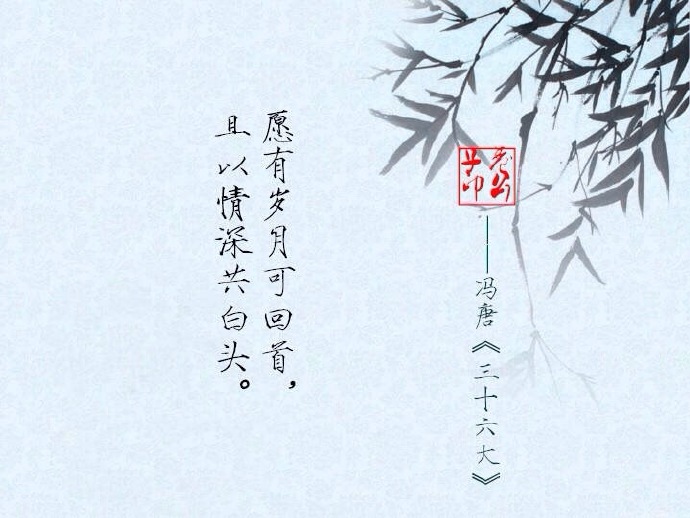 愿有岁月可回首，
且以情深共白头。
——冯唐《三十六大》